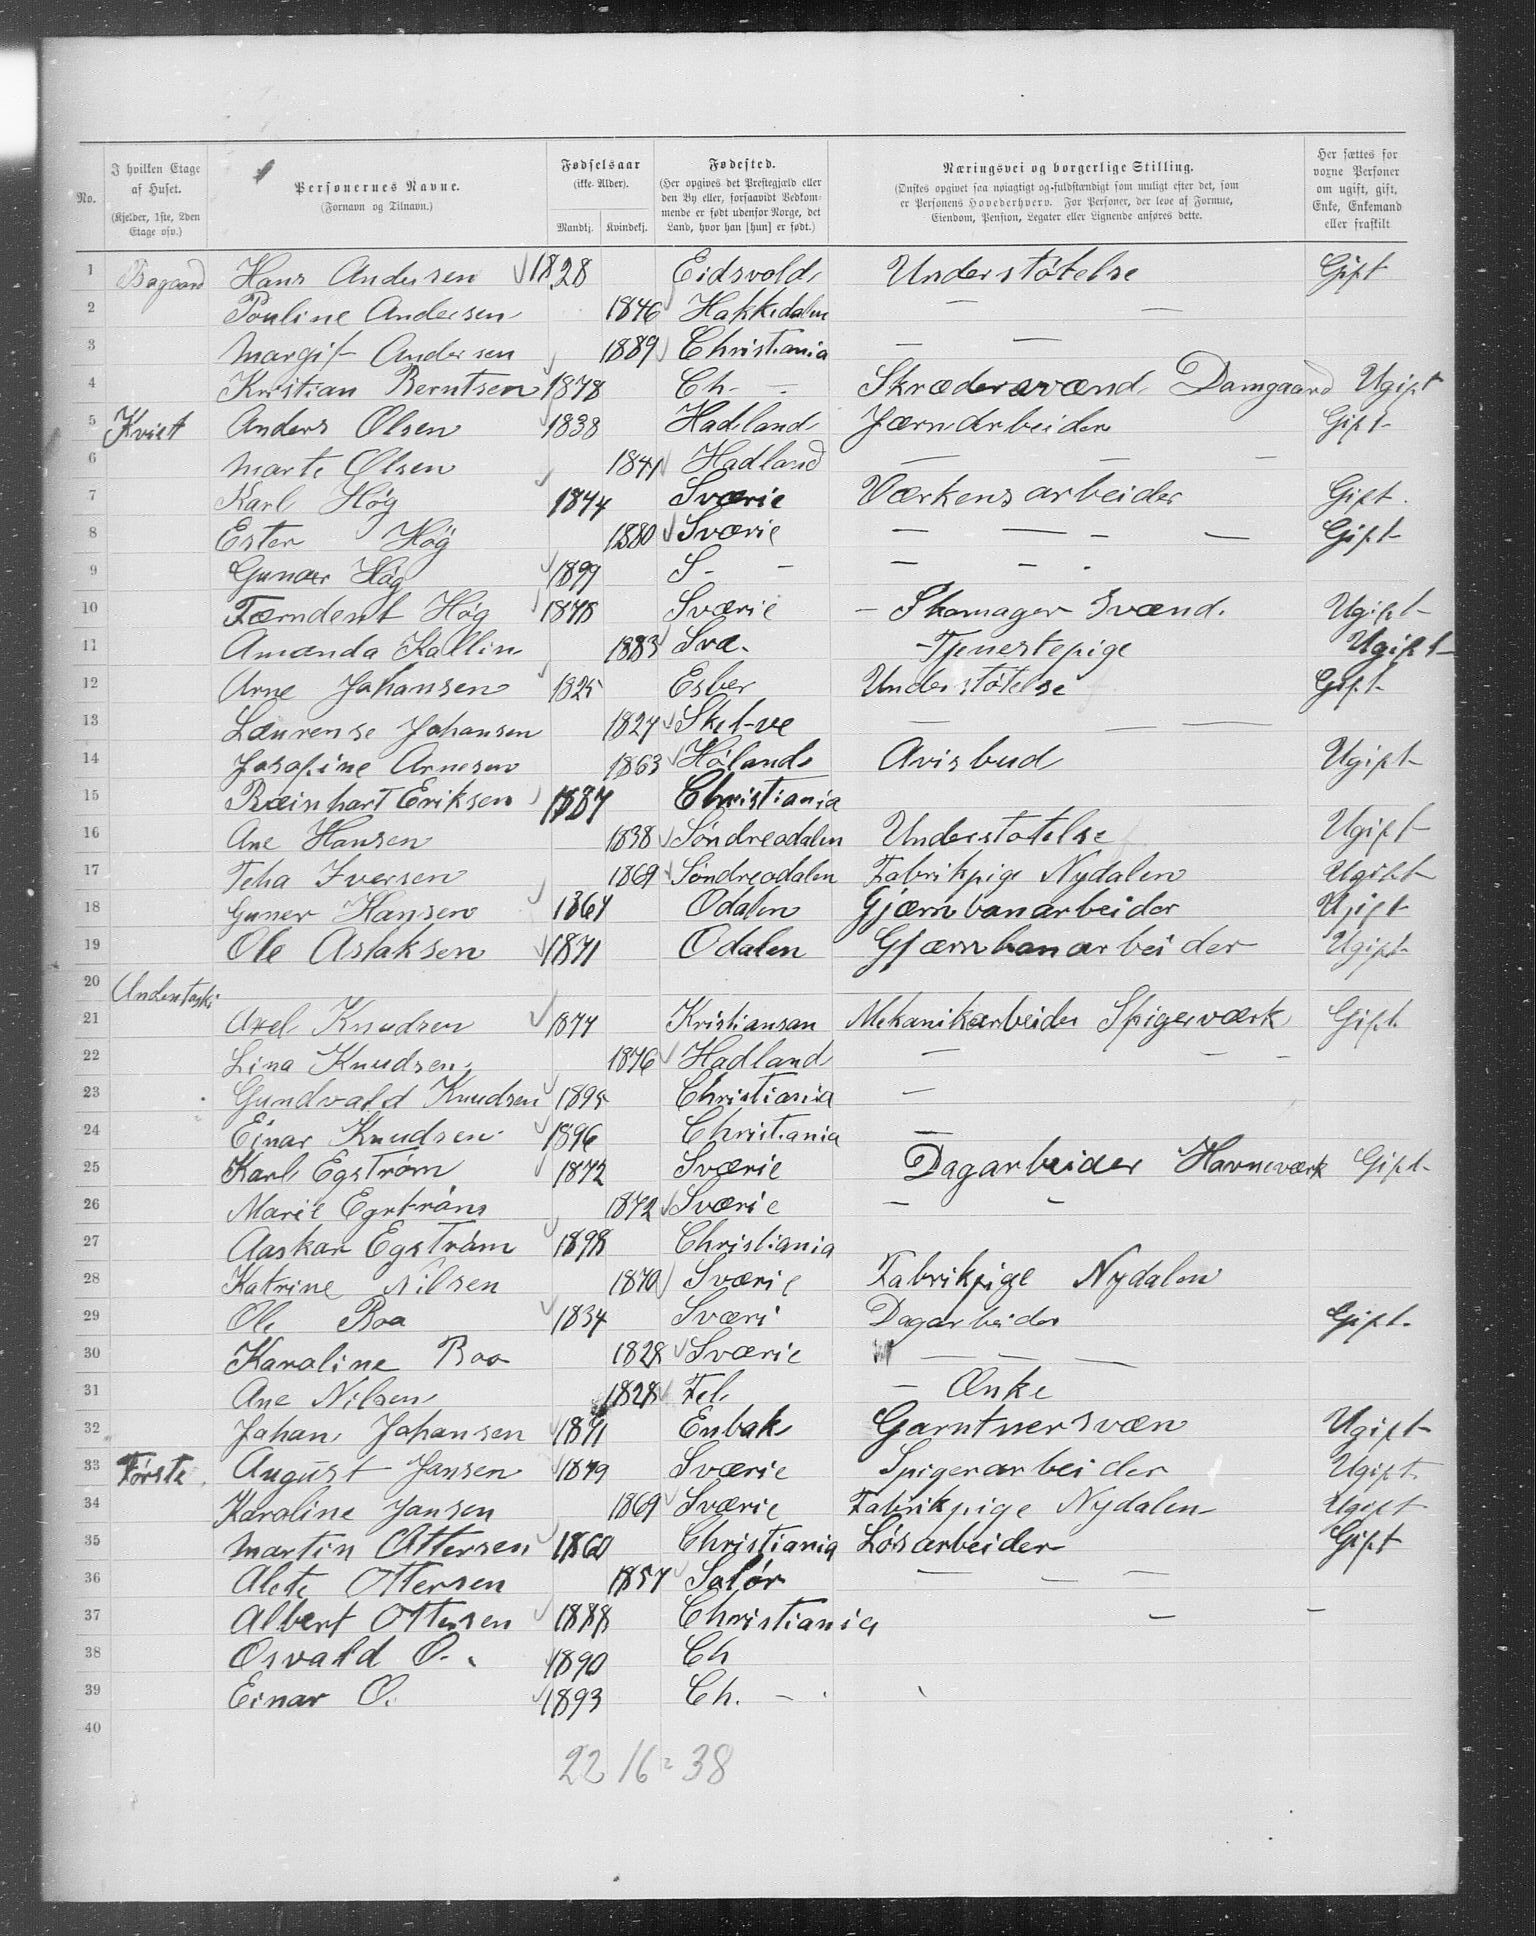 No.
I hvilken Etage af Huset. (Kjelder, 1ste, 2den Etage osv.)
Personernes Navne. (Fornavn og Tilnavn.)
Fødselsaar (ikke Alder). Mandkj. Kvindekj.
Fødested. (Her opgives det Prestegjæld eller den By eller, forsaavidt Vedkommende er født udenfor Norge, det Land, hvor han [hun] er født.)
Næringsvei og borgerlige Stilling. (Ønskes opgivet saa nøiagtigt og fuldstændigt som muligt efter det, som er Personens Hovederhverv. For Personer, der leve af Formue, Eiendom, Pension, Legater eller Lignende anføres dette.
Her sættes for voxne Personer om ugift, gift, Enke, Enkemand eller fraskilt
1 Bagaard Hans Andersen 1828 Eidsvold Understötelse Gift
2 Pouline Andersen 1846 Hakkedalen — —
3 Margit Andersen 1889 Christiania — —
4 Kristian Berntsen 1878 Ch. — Skrædersvænd Damgaard Ugift
5 Kvist Anders Olsen 1838 Hadeland Jærnarbeider Gift
6 Marte Olsen 1841 Hadland — — —
7 Karl Hög 1844 Sværie Værkensarbeider Gift.
8 Ester Hög 1880 Sværie — — - — Gift
9 Gunar Hög 1899 S- - — -
10 Færndent Hög 1878 Sværie — Skomager Svænd. Ugift
11 Amanda Kallin 1883 Svæ. -Tjenestepige Ugift
12 Arne Johansen 1825 Esber Understötelse Gift
13 Laurense Johansen 1827 Sket-ve — — —
14 Josefine Arnesen 1863 Höland Avisbud Ugift
15 Reinhart Eriksen 1887 Christiania
16 Ane Hansen 1838 Söndreodalen Understotelse Ugift
17 Teha Iversen 1869 Söndreodalen Fabrikpige Nydalen Ugift
18 Guner Hansen 1867 Odalen Gjærnbanarbeider Ugift
19 Ole Aslaksen 1871 Odalen Gjærnbanarbeider Ugift
20
21 Axel Knudsen 1877 Kristiansan Mekanikarbeider Spigerværk Gift
22 Lina Knudsen 1876 Hadland — - -
23 Gundvald Knudsen 1895 Christiania —
24 Einar Knudsen 1896 Christiania —
25 Karl Egström 1872 Sværie Dagarbeider Havneværk Gift
26 Marie Egström 1872 Sværie — -
27 Aaskar Egström 1898 Christiania
28 Katrine Nilsen 1870 Sværie Fabrikpige Nydalen
29 Ole Boa 1834 Sværi Dagarbeider Gift.
30 Karoline Boo 1828 Sværie — — —
31 Ane Nilsen 1828 Fet — Ænke
32 Johan Johansen 1871 Enbak Garntnersvæn Ugift
33 Förste August Jansen 1879 Sværie Spigerarbeider Ugift
34 Karoline Jansen 1869 Sværie Fabrikpige Nydalen Ugift
35 Martin Ottersen 1860 Christiania Lösarbeider Gift
36 Alete Ottersen 1857 Solör — — —
37 Albert Ottersen 1888 Christiania — -
38 Osvald O. 1890 Ch
39 Einar O. 1893 Ch. -
40
22 16 = 38